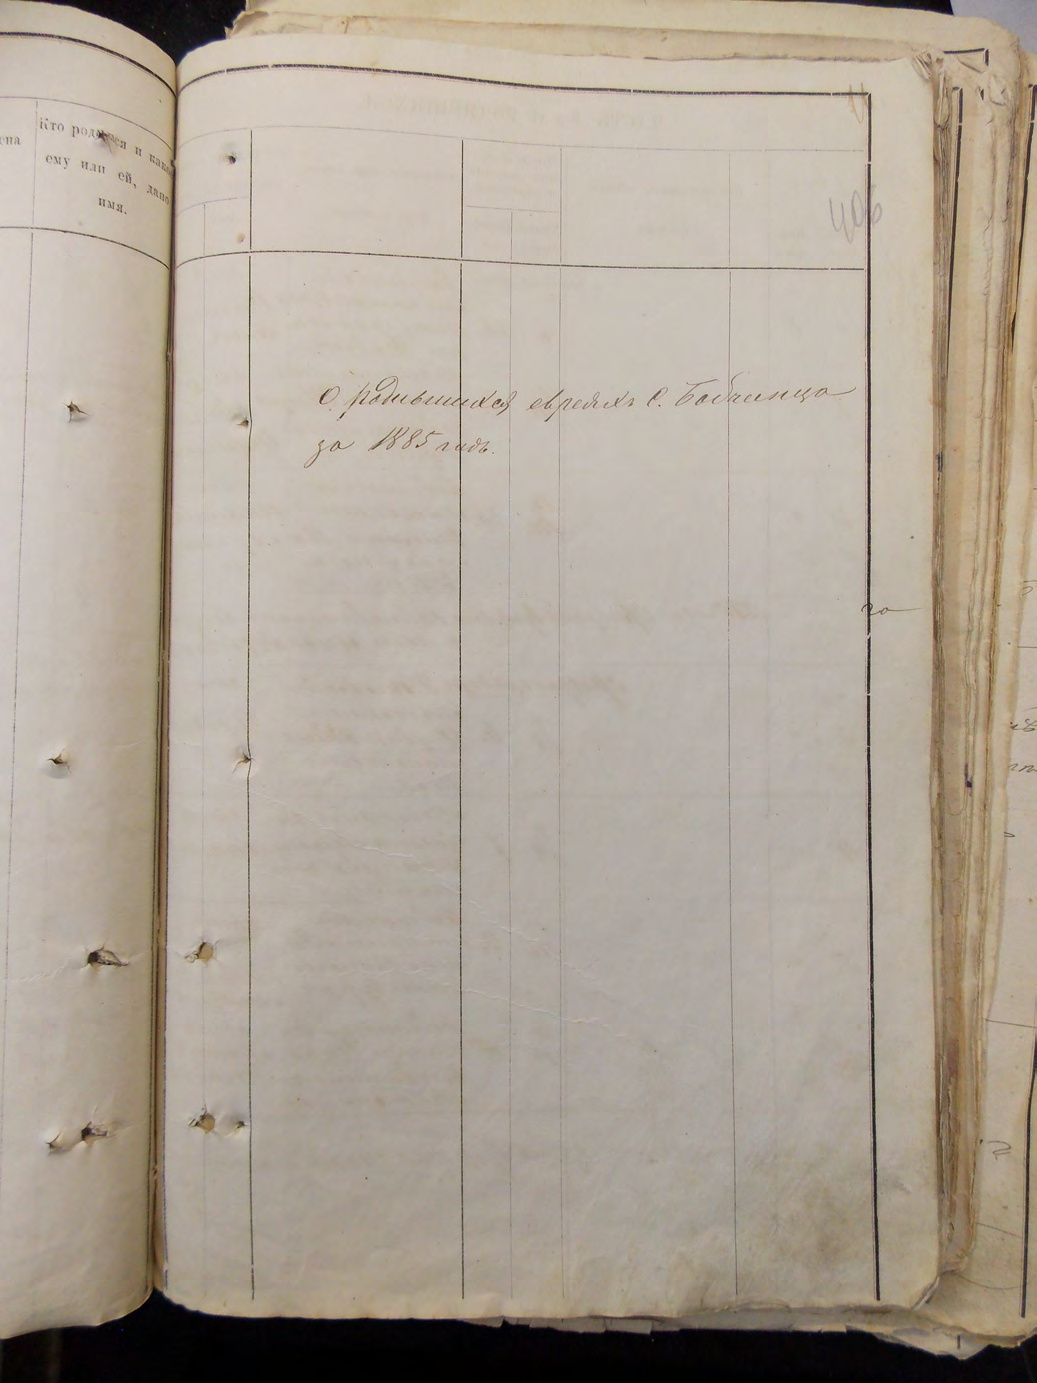 Кто родился и какое
ему или ей, дано
имя.
406
О родившихся евреяхъ с. Бабчинцо
за 1885 годъ.
го